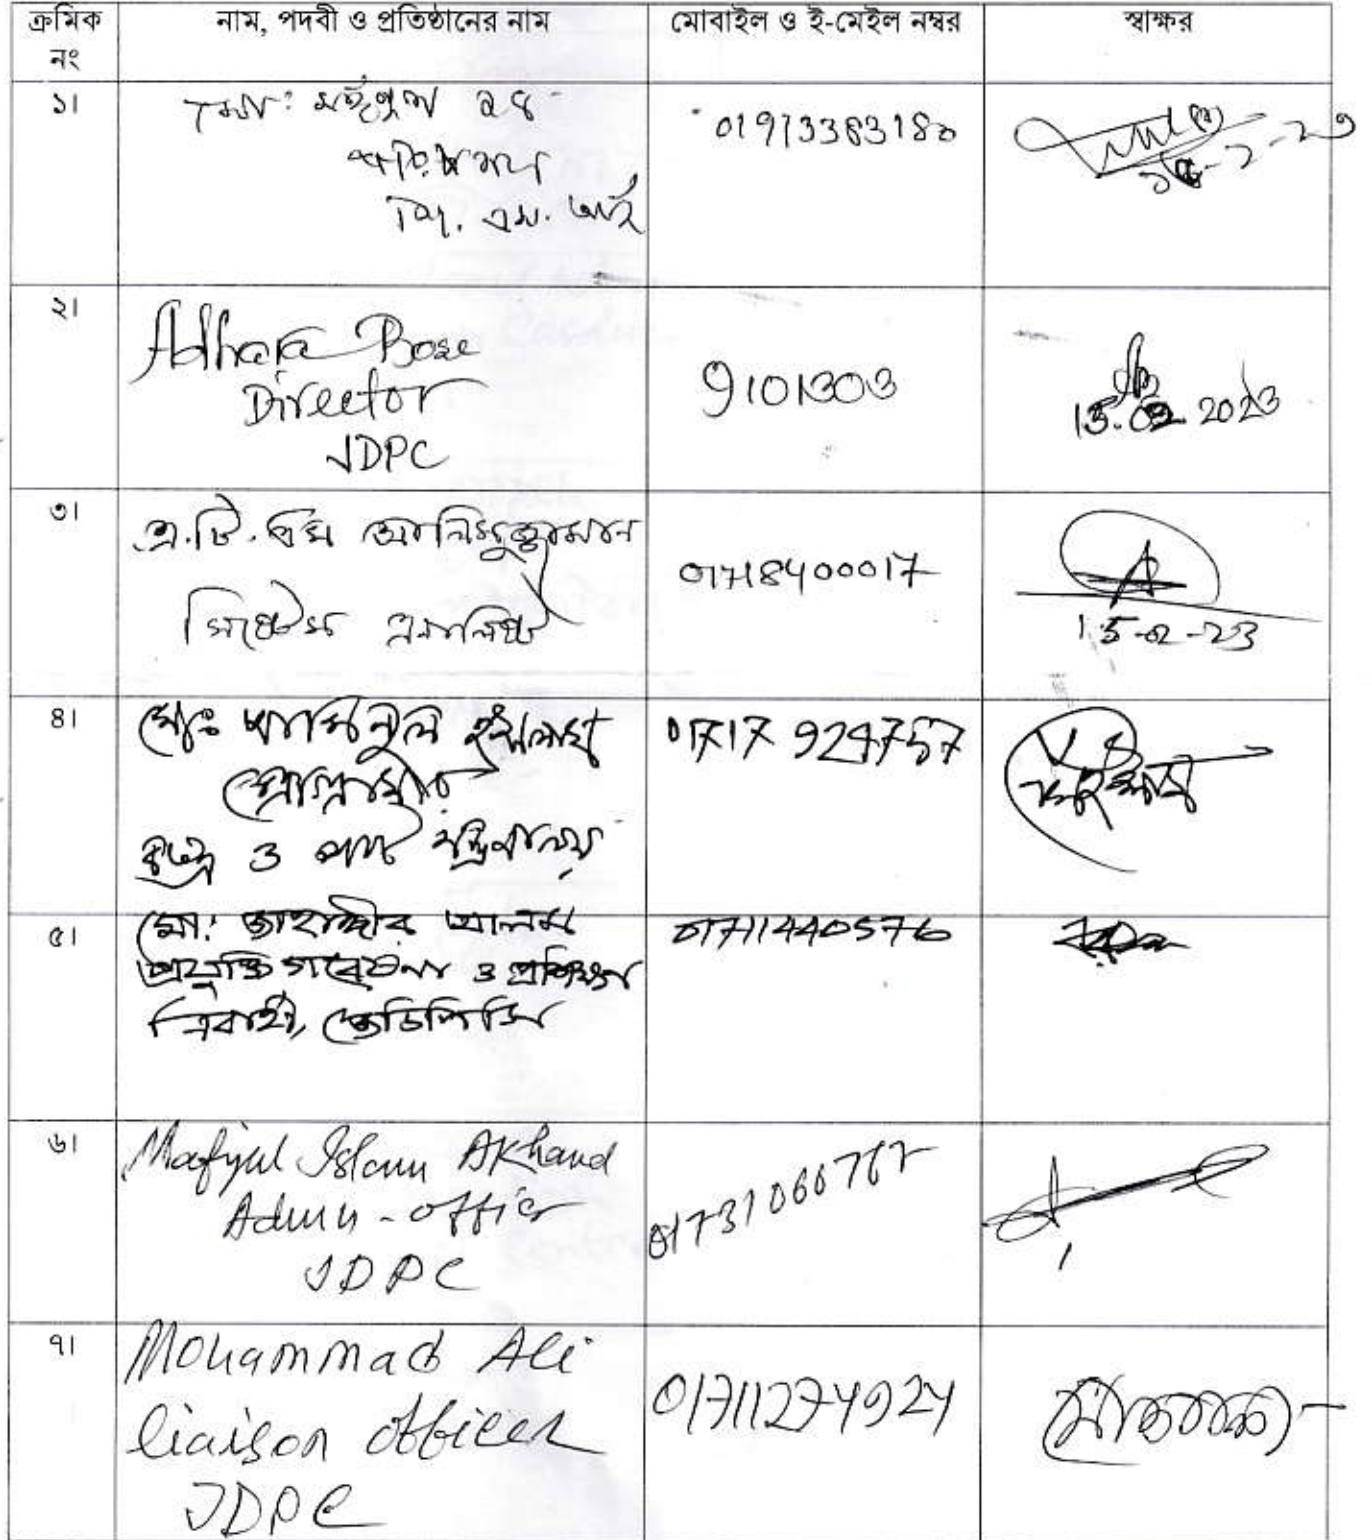 ক্রমিক নং
নাম, পদবী ও প্রতিষ্ঠানের নাম
মোবাইল ও ই-মেইল নম্বর
স্বাক্ষর
১।
মো:
01913383180
২।
Adhara Bose
Director
JDPC
9101303
15.02.2023
৩।
এ.টি.এম আনিসুজ্জামান
সিস্টেম এনালিস্ট
01718400017
15-02-23
৪।
মোঃ আমিনুল ইসলাম
প্রোগ্রামার
বস্ত্র ও পাট মন্ত্রণালয়
01717 924757
৫।
মো: জাহাঙ্গীর আলম
প্রযুক্তি গবেষনা ও প্রশিক্ষণ
নির্বাহী, জেডিপিসি
01711440576
৬।
Mafijul Islam Akhand
Admn-officer
JDPC
৭।
Mohammad Ali
liaison officer
JDPC
01711274924